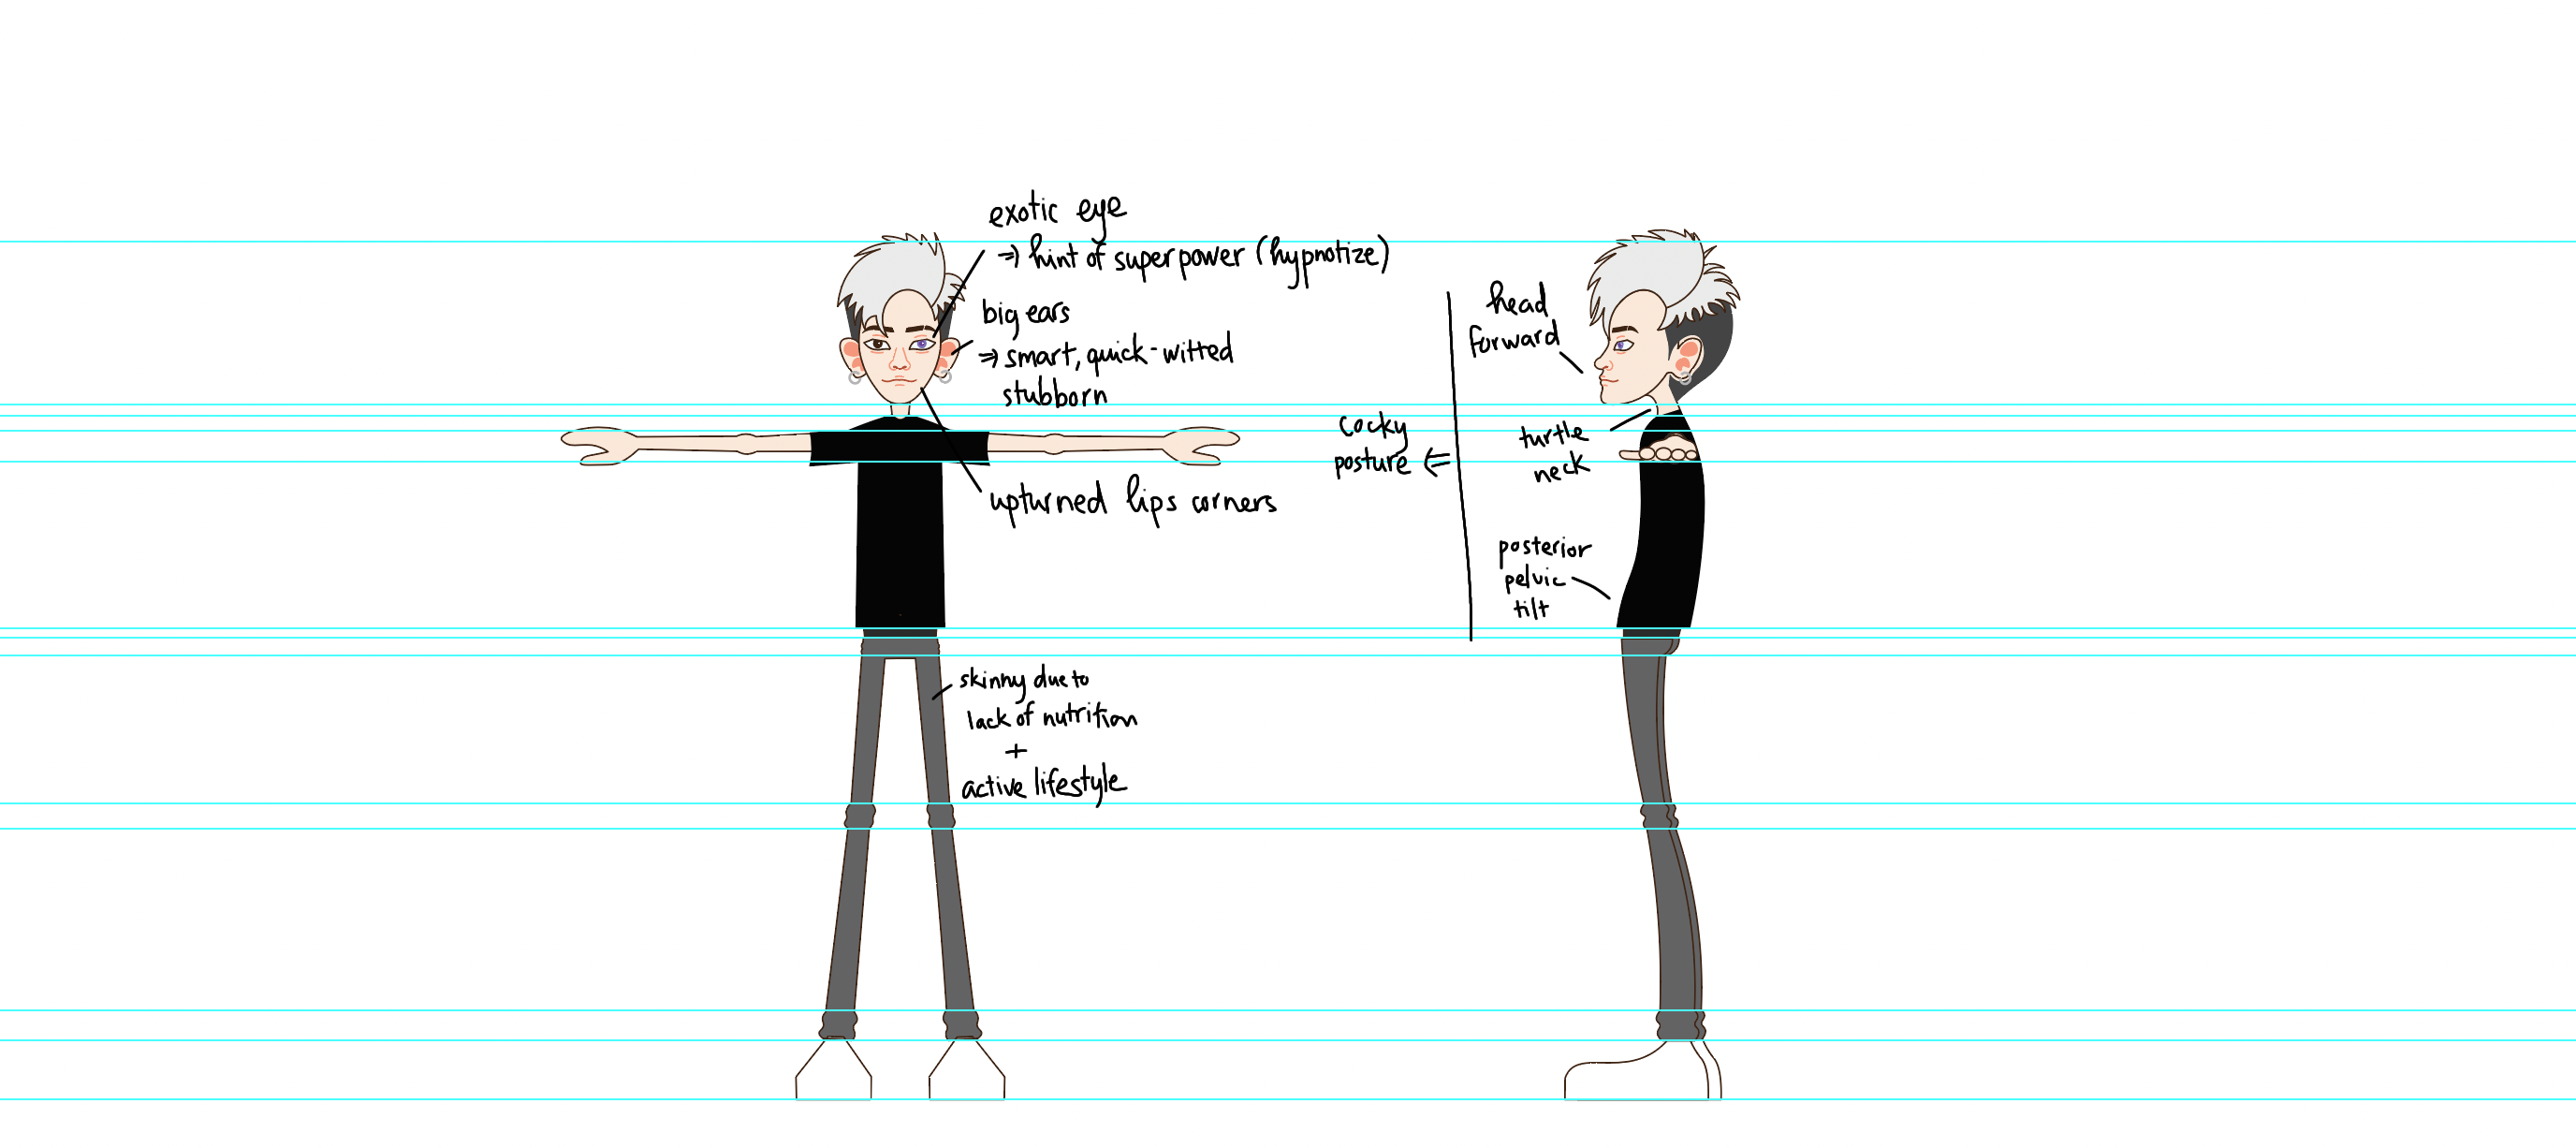 exotic eye
⇒ hint of superpower (hypnotize)
big ears
⇒ smart, quick-witted
stubborn
upturned lips corners
skinny due to
lack of nutrition
+
active lifestyle
head
forward
cocky
posture ⇐
turtle
neck
posterior
pelvic
tilt